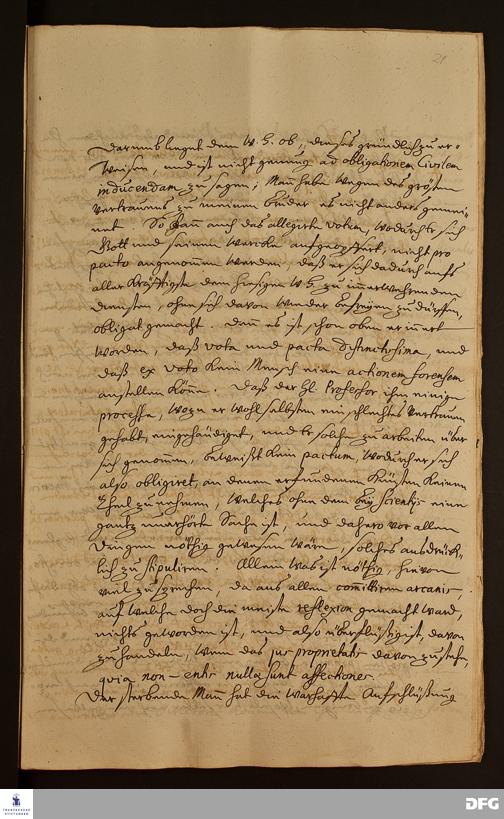 21
Darumb lieget dem W. H. ob, dieses gründlich zu er-
weisen, und ist nicht genung ad obligationem Civilem
inducendam zu sagen; Man habe wegen des grösten
Vertrauens zu meinem Bruder es nicht anders gemei-
net. So kann auch das allegirte votum, wodurch er sich
Gott und seinem Wercke aufgeopffert, nicht pro
pacto angenommen werden, daß er sich dadurch aufs
aller kräfftigste dem hiesigen W. H. zu immerwehrenden
diensten, ohne sich davon wieder befreyen zu dürffen,
obligat gemacht. denn es ist schon oben erinnert
worden, daß vota und pacta distinctissima, und
daß ex voto kein Mensch eine actionem forensem
anstellen könne. Daß der Hl. Professor ihm einige
processe, wozu er wohl selbsten ein schlechtes Vertrauen
gehabt, eingehändiget, und Er solche zu arbeiten über
sich genommen, beweißt kein pactum, wodurch er sich
also obligiret, an denen erfundenen Künsten keinen
theil zu nehmen, welches ohne dem bey Scientiis eine
gantz unerhörte Sache ist, und dahero vor allen
dingen nöthig gewesen wäre, solches ausdrück-
lich zu stipuliren. Allein was ist nöthig, hievon
viel zu sprechen, da aus allen committirten arcanis,
auf welche doch die meiste reflexion gemacht ward,
nichts geworden ist, und also überflüßig ist, davon
zu handeln, wem das jus proprietatis davon zustehe,
quia non-entis nullae sunt affectiones.
Der sterbende Mann hat die warhaffte Aufschlüßung
FRANCKESCHE STIFTUNGEN
DFG